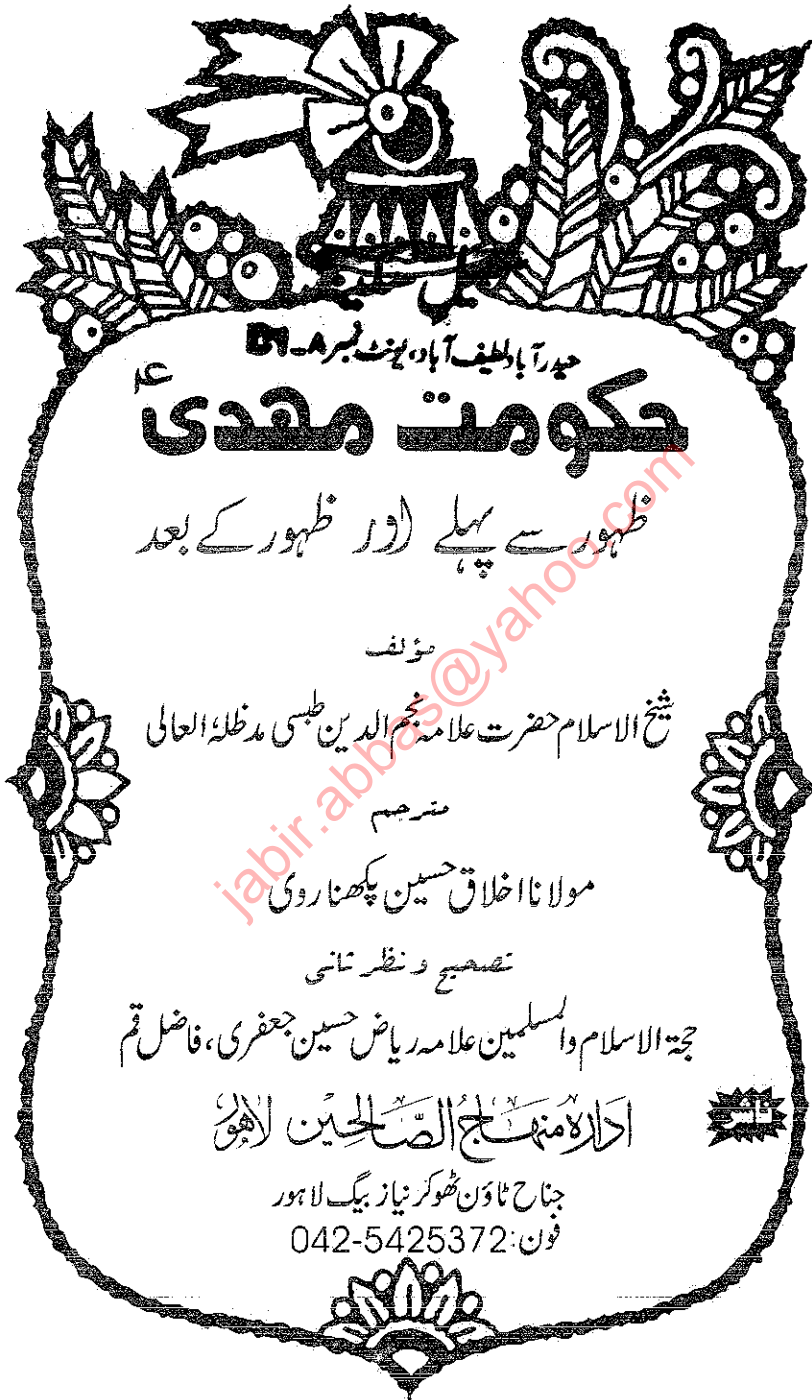 سبیل سکینہ
حیدرآباد لطیف آباد، یونٹ نمبر ۸-D1
حکومت مهدیؑ
ظہور سے پہلے اور ظہور کے بعد
مؤلف
شیخ الاسلام حضرت علامہ نجم الدین طبسی مدظلہٗ العالی
مترجم
مولانا اخلاق حسین پکھناروی
تصحیح و نظر ثانی
حجۃ الاسلام والمسلمین علامہ ریاض حسین جعفری، فاضل قم
ناشر
ادارہ منہاج الصالحین لاہور
جناح ٹاؤن ٹھوکر نیاز بیگ لاہور
فون: 042-5425372
jabir.abbas@yahoo.com